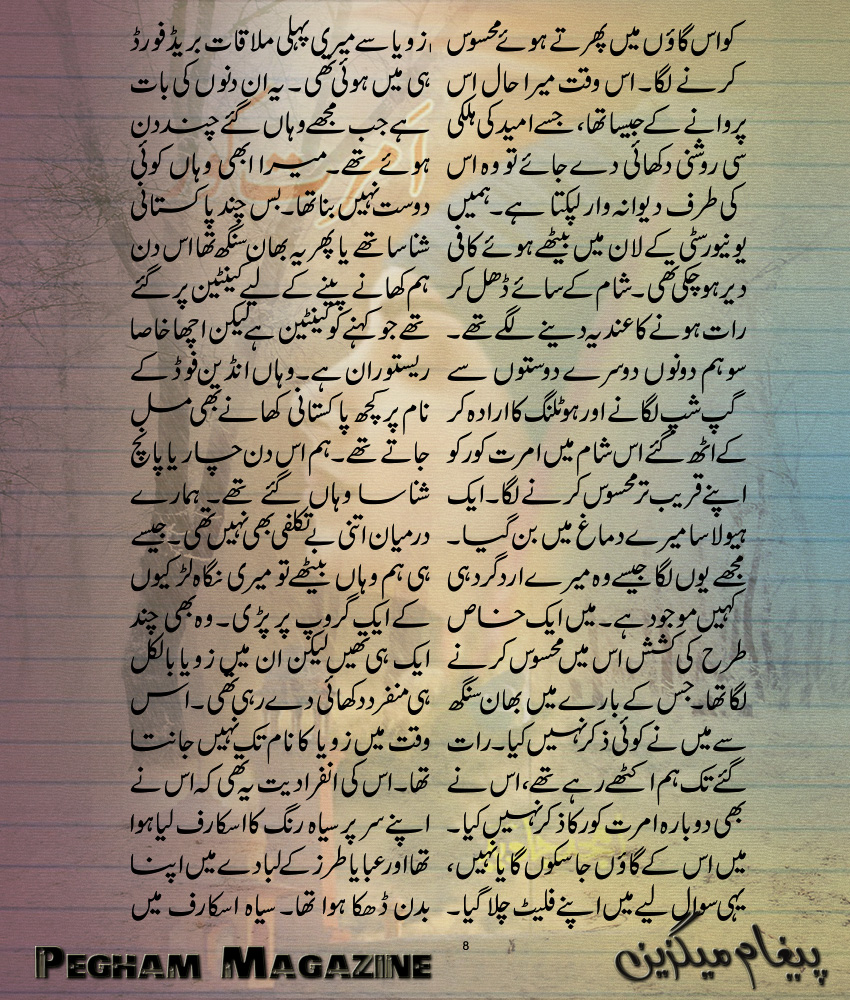 کو اس گاؤں میں پھرتے ہوئے محسوس
کرنے لگا۔ اس وقت میرا حال اس
پروانے کے جیسا تھا، جسے امید کی ہلکی
سی روشنی دکھائی دے جائے تو وہ اس
کی طرف دیوانہ وار لپکتا ہے۔ ہمیں
یونیورسٹی کے لان میں بیٹھے ہوئے کافی
دیر ہو چکی تھی۔ شام کے سائے ڈھل کر
رات ہونے کا عندیہ دینے لگے تھے۔
سو ہم دونوں دوسرے دوستوں سے
گپ شپ لگانے اور ہوٹلنگ کا ارادہ کر
کے اٹھ گئے اس شام میں امرت کور کو
اپنے قریب تر محسوس کرنے لگا۔ ایک
ہیولا سا میرے دماغ میں بن گیا۔
مجھے یوں لگا جیسے وہ میرے ارد گرد ہی
کہیں موجود ہے۔ میں ایک خاص
طرح کی کشش اس میں محسوس کرنے
لگا تھا۔ جس کے بارے میں بھان سنگھ
سے میں نے کوئی ذکر نہیں کیا۔ رات
گئے تک ہم اکٹھے رہے تھے، اس نے
بھی دوبارہ امرت کور کا ذکر نہیں کیا۔
میں اس کے گاؤں جا سکوں گا یا نہیں،
یہی سوال لیے میں اپنے فلیٹ چلا گیا۔
زویا سے میری پہلی ملاقات بریڈ فورڈ
ہی میں ہوئی تھی۔ یہ ان دنوں کی بات
ہے جب مجھے وہاں گئے چند دن
ہوئے تھے۔ میرا ابھی وہاں کوئی
دوست نہیں بنا تھا۔ بس چند پاکستانی
شناسا تھے یا پھر یہ بھان سنگھ تھا اس دن
ہم کھانے پینے کے لیے کینٹین پر گئے
تھے جو کہنے کو کینٹین ہے لیکن اچھا خاصا
ریستوران ہے۔ وہاں انڈین فوڈ کے
نام پر کچھ پاکستانی کھانے بھی مل
جاتے تھے۔ ہم اس دن چار یا پانچ
شناسا وہاں گئے تھے۔ ہمارے
درمیان اتنی بے تکلفی بھی نہیں تھی۔ جیسے
ہی ہم وہاں بیٹھے تو میری نگاہ لڑکیوں
کے ایک گروپ پر پڑی۔ وہ بھی چند
ایک ہی تھیں لیکن ان میں زویا بالکل
ہی منفرد دکھائی دے رہی تھی۔ اس
وقت میں زویا کا نام تک نہیں جانتا
تھا۔ اس کی انفرادیت یہ تھی کہ اس نے
اپنے سر پر سیاہ رنگ کا اسکارف لیا ہوا
تھا اور عبایا طرز کے لبادے میں اپنا
بدن ڈھکا ہوا تھا۔ سیاہ اسکارف میں
8
PEGHAM MAGAZINE
پیغام میگزین